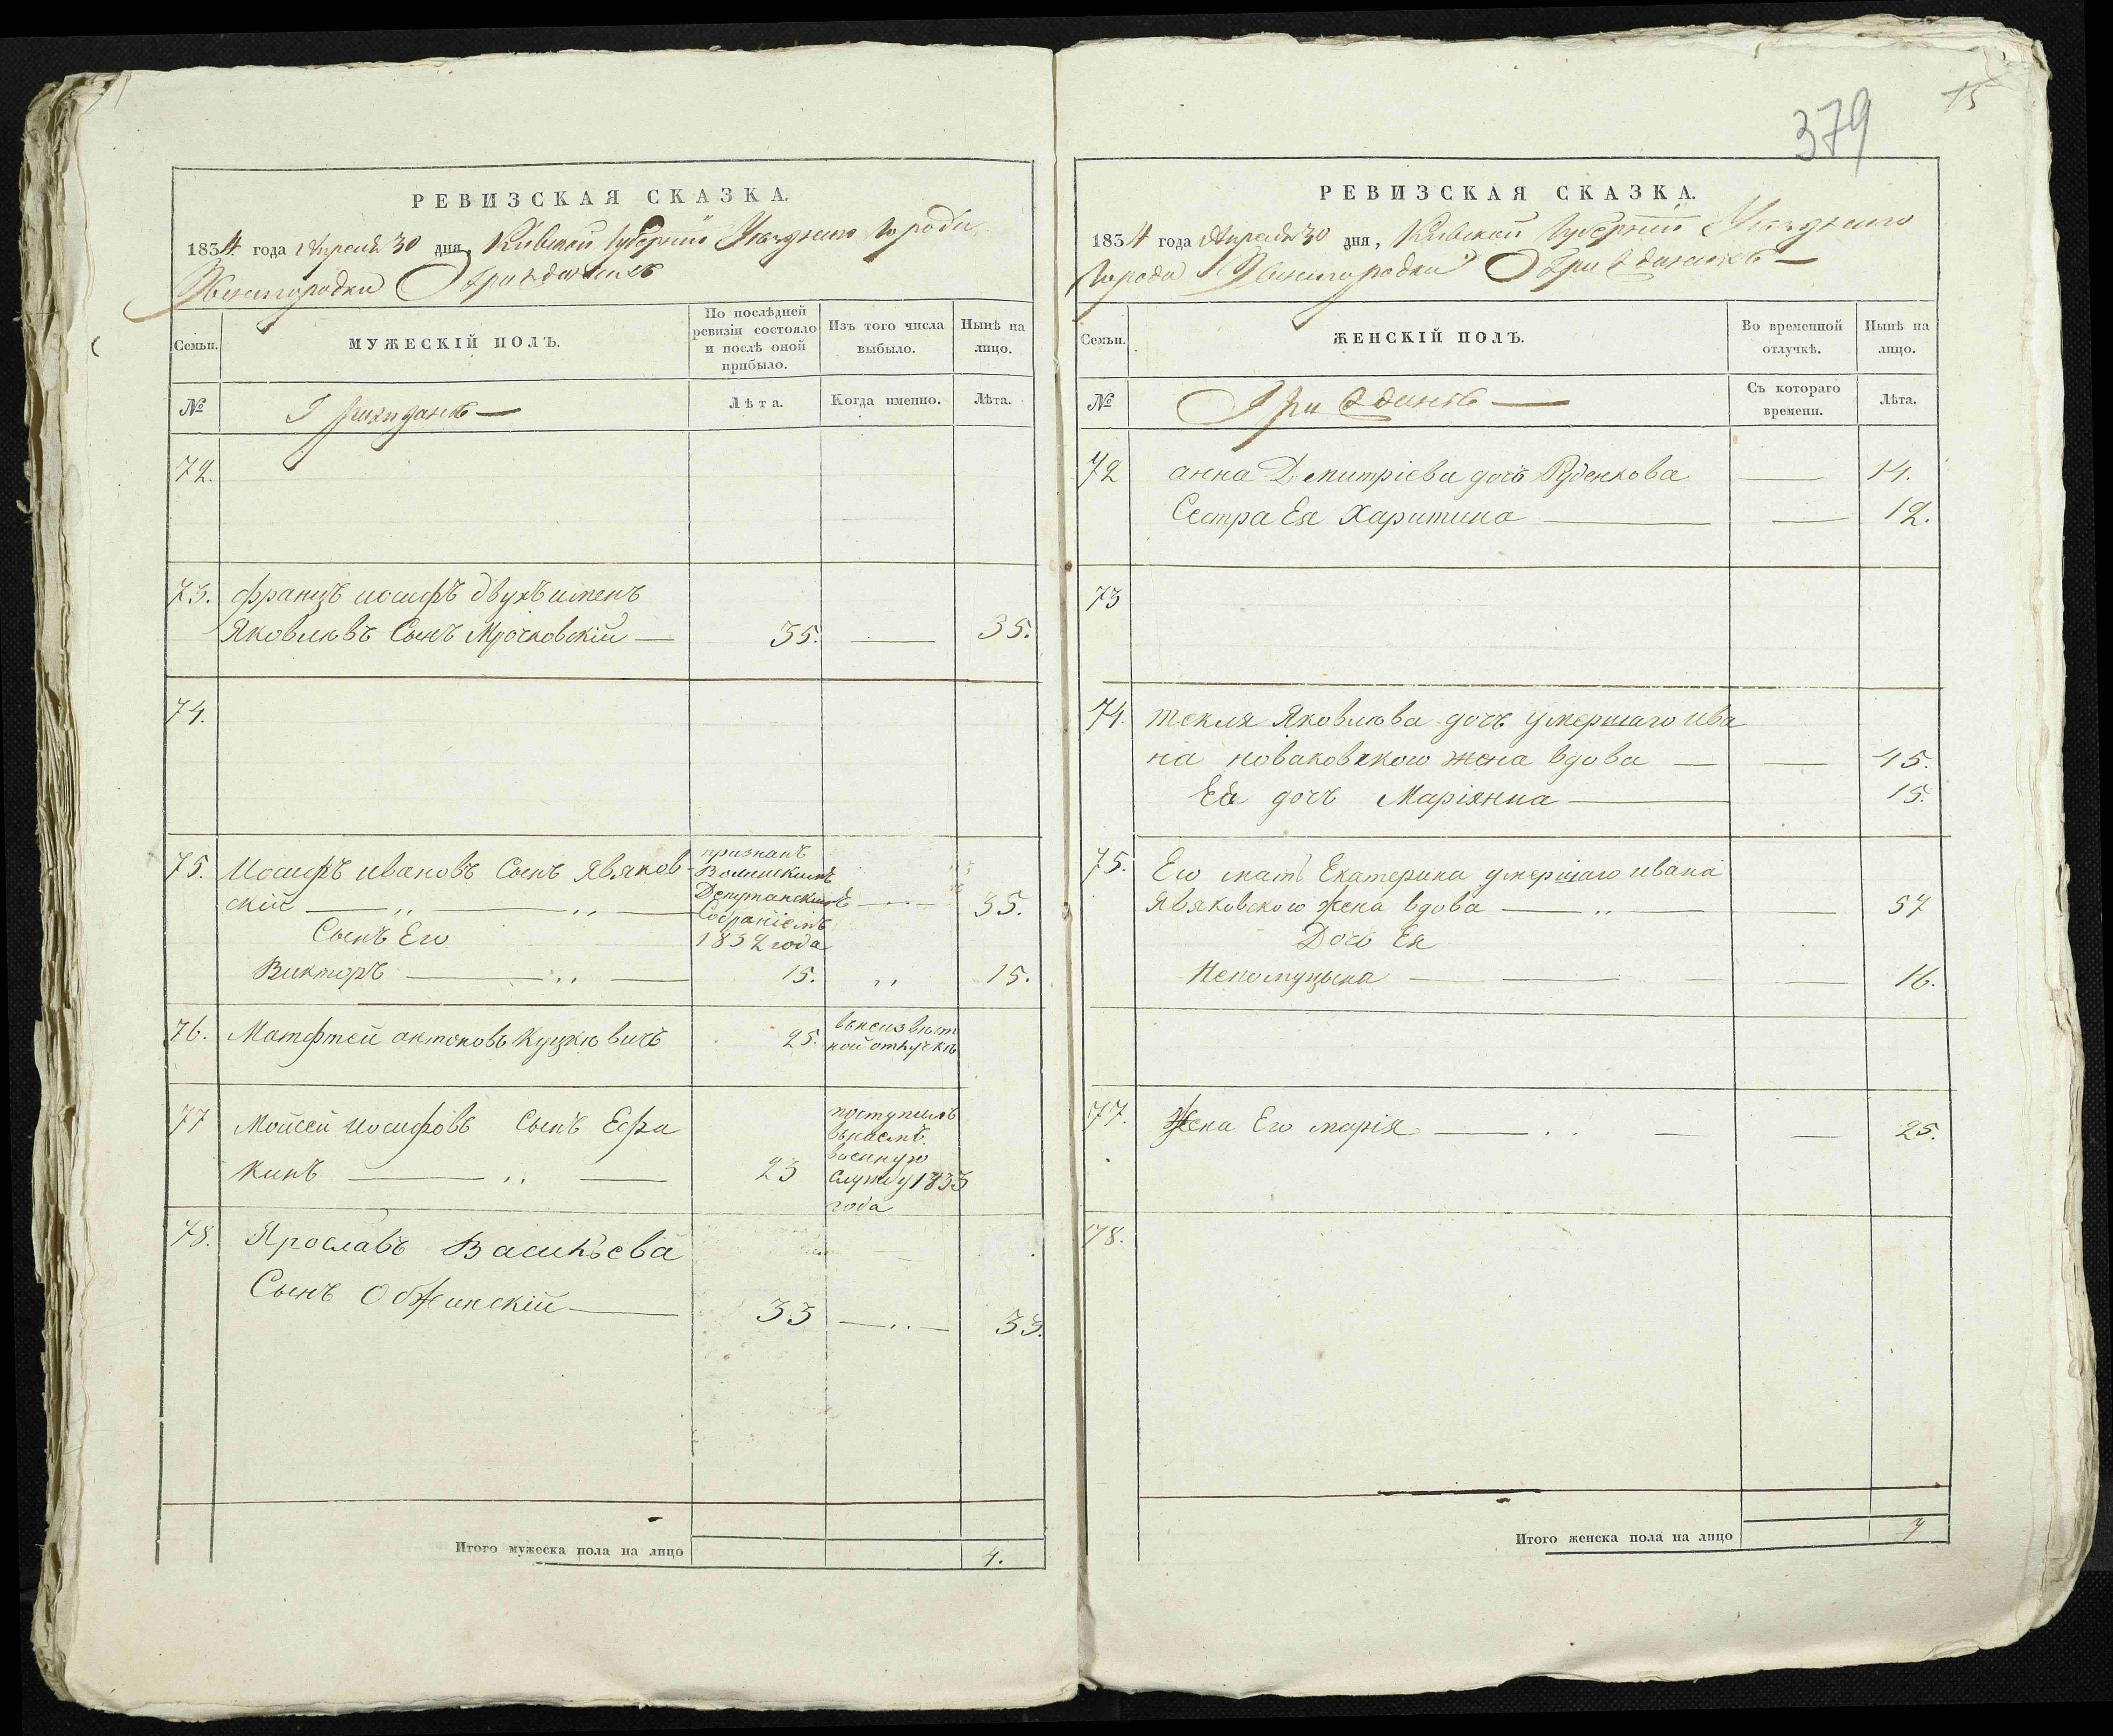 РЕВИЗСКАЯ СКАЗКА.
1834 года Апреля 30 дня, Кіевской Губерніи Уезднаго города
Звенигородки О Гражданахъ
Семьи.
МУЖЕСКІЙ ПОЛЪ.
По послѣдней
ревизіи состояло
и послѣ оной
прибыло.
Изъ того числа
выбыло.
Нынѣ на
лицо.
№
Гражданъ —
Лѣта.
Когда именно.
Лѣта.
72.
73. Францъ иосифъ двухъ именъ
Яковлевъ Сынъ Мрочковскій — 35. — 35.
74.
75. Иосифъ ивановъ Сынъ Явяков-
скій — 35.
признанъ
Волынскимъ
Депутанскимъ
Собраніемъ
1832 года
Сынъ Его
Викторъ — 15. „ 15.
76. Матфтей антоновъ Куцкѣвичъ 25.
въ неизвѣст
ной отлучкѣ
77 Мойсей иосифовъ Сынъ Ефи
кинъ — 23
поступилъ
въ наемъ
военную
службу 1833
года
78. Ярославъ Васильева
Сынъ Обжинскій — 33 — 33.
Итого мужеска пола на лицо 4.
379
15
РЕВИЗСКАЯ СКАЗКА.
1834 года Апреля 30 дня, Кіевской Губерніи Уезднаго
города Звенигородки О Гражданахъ —
Семьи.
ЖЕНСКІЙ ПОЛЪ.
Во временной
отлучкѣ.
Нынѣ на
лицо.
№
Гражданъ —
Съ котораго
времени.
Лѣта.
72 анна Дмитріева дочь Руденкова — 14.
Сестра Ея Харитина — 12.
73
74. Текля Яковлева дочь умершаго ива
на новаковского жена вдова — 45.
Её дочъ Маріянна — 15.
75. Его мать Екатерина умершаго ивана
Явяковского жена вдова — 57
Дочь Ея
Непомуцына — 16.
77. Жена Его марія — 25.
78.
Итого женска пола на лицо 7